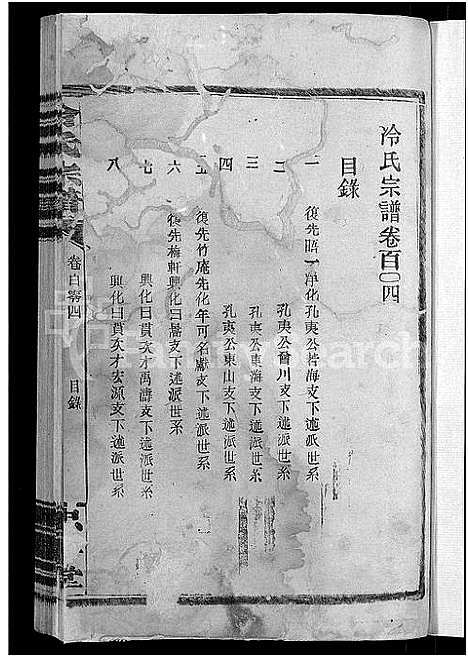 冷氏宗譜卷百〇四
目錄
一 復先昭一淨化孔夷公若海支下述派世系
二 孔夷公曾川支下述派世系
三 孔夷公東海支下述派世系
四 孔夷公東山支下述派世系
五 復先竹庵先化年可名獻支下述派世系
六 復先梅軒興化曰暠支下述派世系
七 興化曰貫次才禹濤支下述派世系
八 興化曰貫次才宏源支下述派世系
冷氏宗譜
卷百零四
目錄
堂
FamilySearch